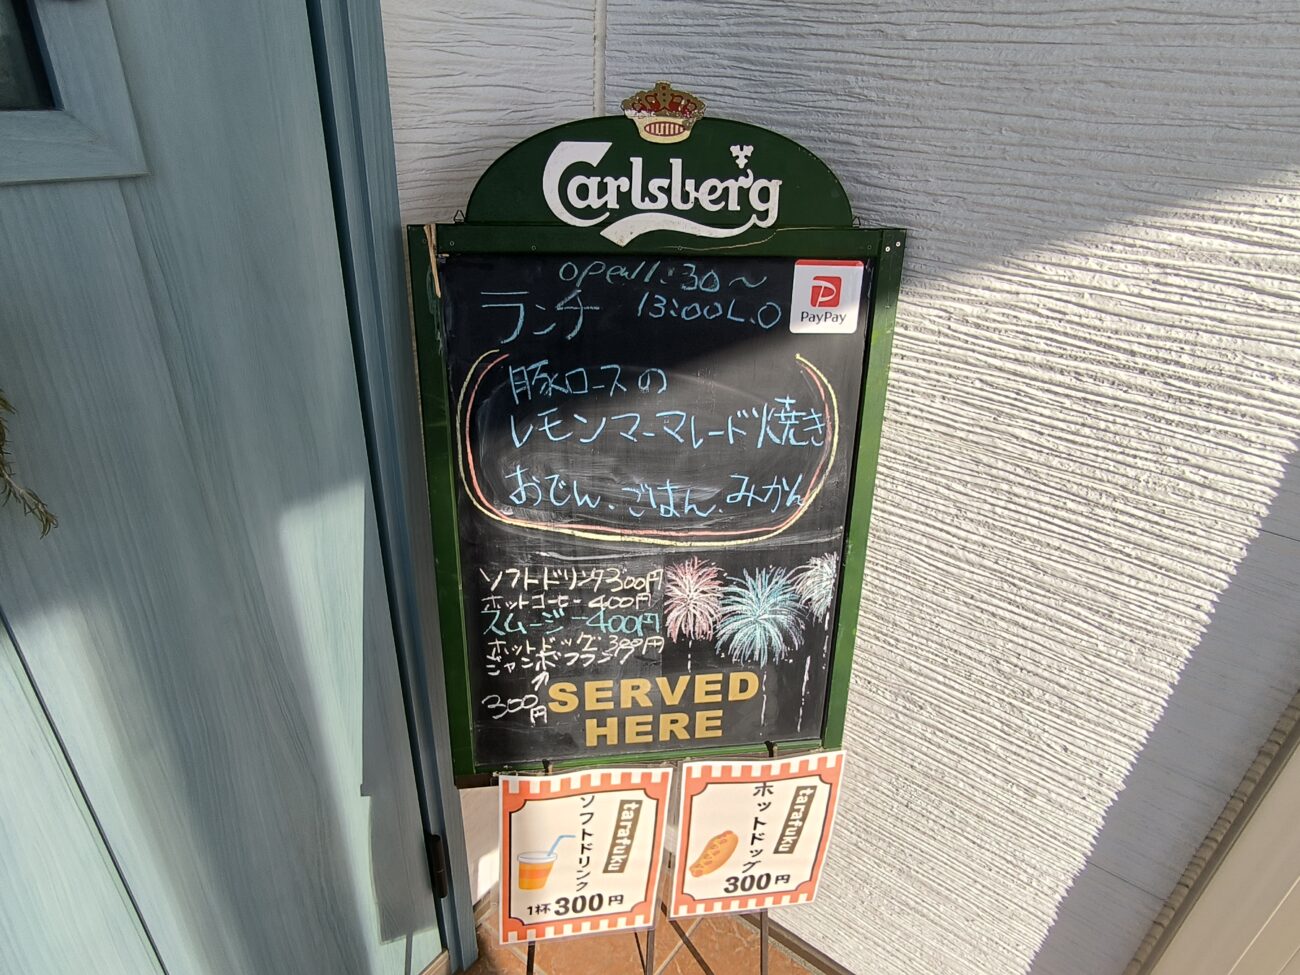 Carlsberg
open 11:30～
ランチ 13:00 L.O
PayPay
豚ロースの
レモンマーマレード焼き
おでん、ごはん、みかん
ソフトドリンク300円
ホットコーヒー400円
スムージー400円
ホットドッグ300円
ジャンボフランク
↑
300円
SERVED
HERE
tarafuku
ソフトドリンク
1杯300円
tarafuku
ホットドッグ
300円